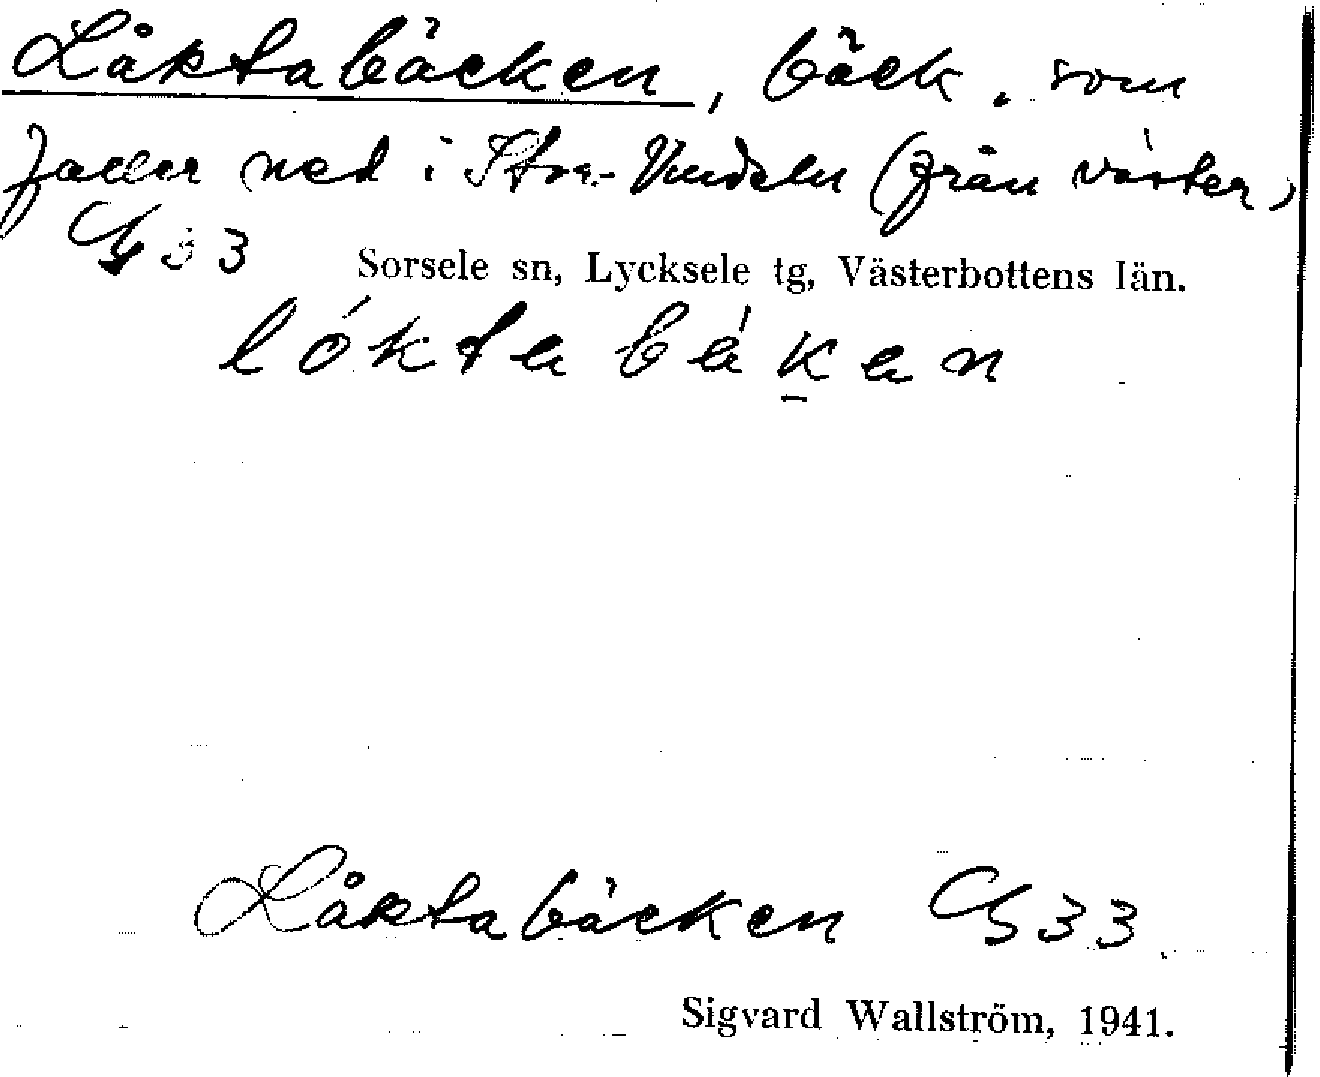 Låktabäcken, bäck, som
faller ned i Stor-Vindeln (från väster)
G 33 Sorsele sn, Lycksele tg, Västerbottens län.
lóktabäkan
Låktabäcken G 33
Sigvard Wallström, 1941.